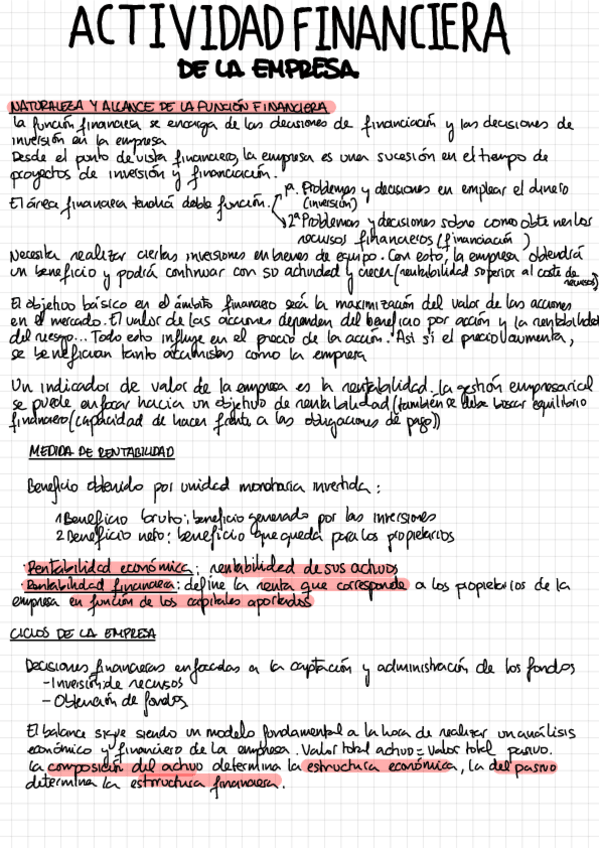 ACTIVIDAD FINANCIERA
DE LA EMPRESA
NATURALEZA Y ALCANCE DE LA FUNCIÓN FINANCIERA
La función financiera se encarga de las decisiones de financiación y las decisiones de
inversión en la empresa
Desde el punto de vista financiero, la empresa es una sucesión en el tiempo de
proyectos de inversión y financiación.
El área financiera tendrá doble función.
1ª. Problemas y decisiones en emplear el dinero
(inversión)
2ª Problemas y decisiones sobre como obtener los
recursos financieros (financiación)
Necesita realizar ciertas inversiones en bienes de equipo. Con esto, la empresa obtendrá
un beneficio y podrá continuar con su actividad y crecer (rentabilidad superior al coste de
recursos)
El objetivo básico en el ámbito financiero será la maximización del valor de las acciones
en el mercado. El valor de las acciones dependen del beneficio por acción y la rentabilidad
del riesgo... Todo esto influye en el precio de la acción. Así si el precio aumenta,
se benefician tanto accionistas como la empresa
Un indicador de valor de la empresa es la rentabilidad. La gestión empresarial
se puede enfocar hacia un objetivo de rentabilidad (también se debe buscar equilibrio
financiero (capacidad de hacer frente a las obligaciones de pago))
MEDIDA DE RENTABILIDAD
Beneficio obtenido por unidad monetaria invertida:
1 Beneficio bruto: beneficio generado por las inversiones
2 Beneficio neto: beneficio que queda para los propietarios
· Rentabilidad económica: rentabilidad de sus activos
· Rentabilidad financiera: define la renta que corresponde a los propietarios de la
empresa en función de los capitales aportados
CICLOS DE LA EMPRESA
Decisiones financieras enfocadas a la captación y administración de los fondos
- Inversión de recursos
- Obtención de fondos
El balance sigue siendo un modelo fundamental a la hora de realizar un análisis
económico y financiero de la empresa. Valor total activo = valor total pasivo.
La composición del activo determina la estructura económica, la del pasivo
determina la estructura financiera.